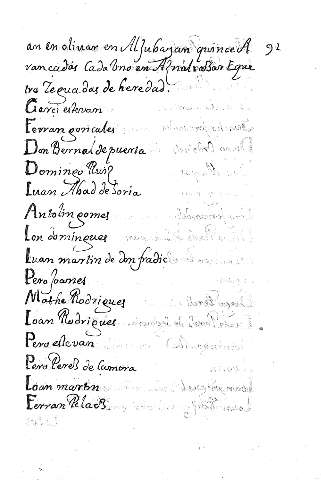 an en olivar en Aljubajan quince A 92
rancadas Cada uno en Aznalcasar E que
tro Zeguadas de heredad.
Garci estevan
Ferran gonçales
Don Bernal de puerta
Domingo Ruiz
Iuan Abad de Soria
Antolin gomes
Ion domingues
Iuan martin de don fradic
Pero Joanes
Mathe Rodrigues
Ioan Rodrigues
Pero estevan
Pero Peres de Camora
Ioan martin
Ferran Pelaes